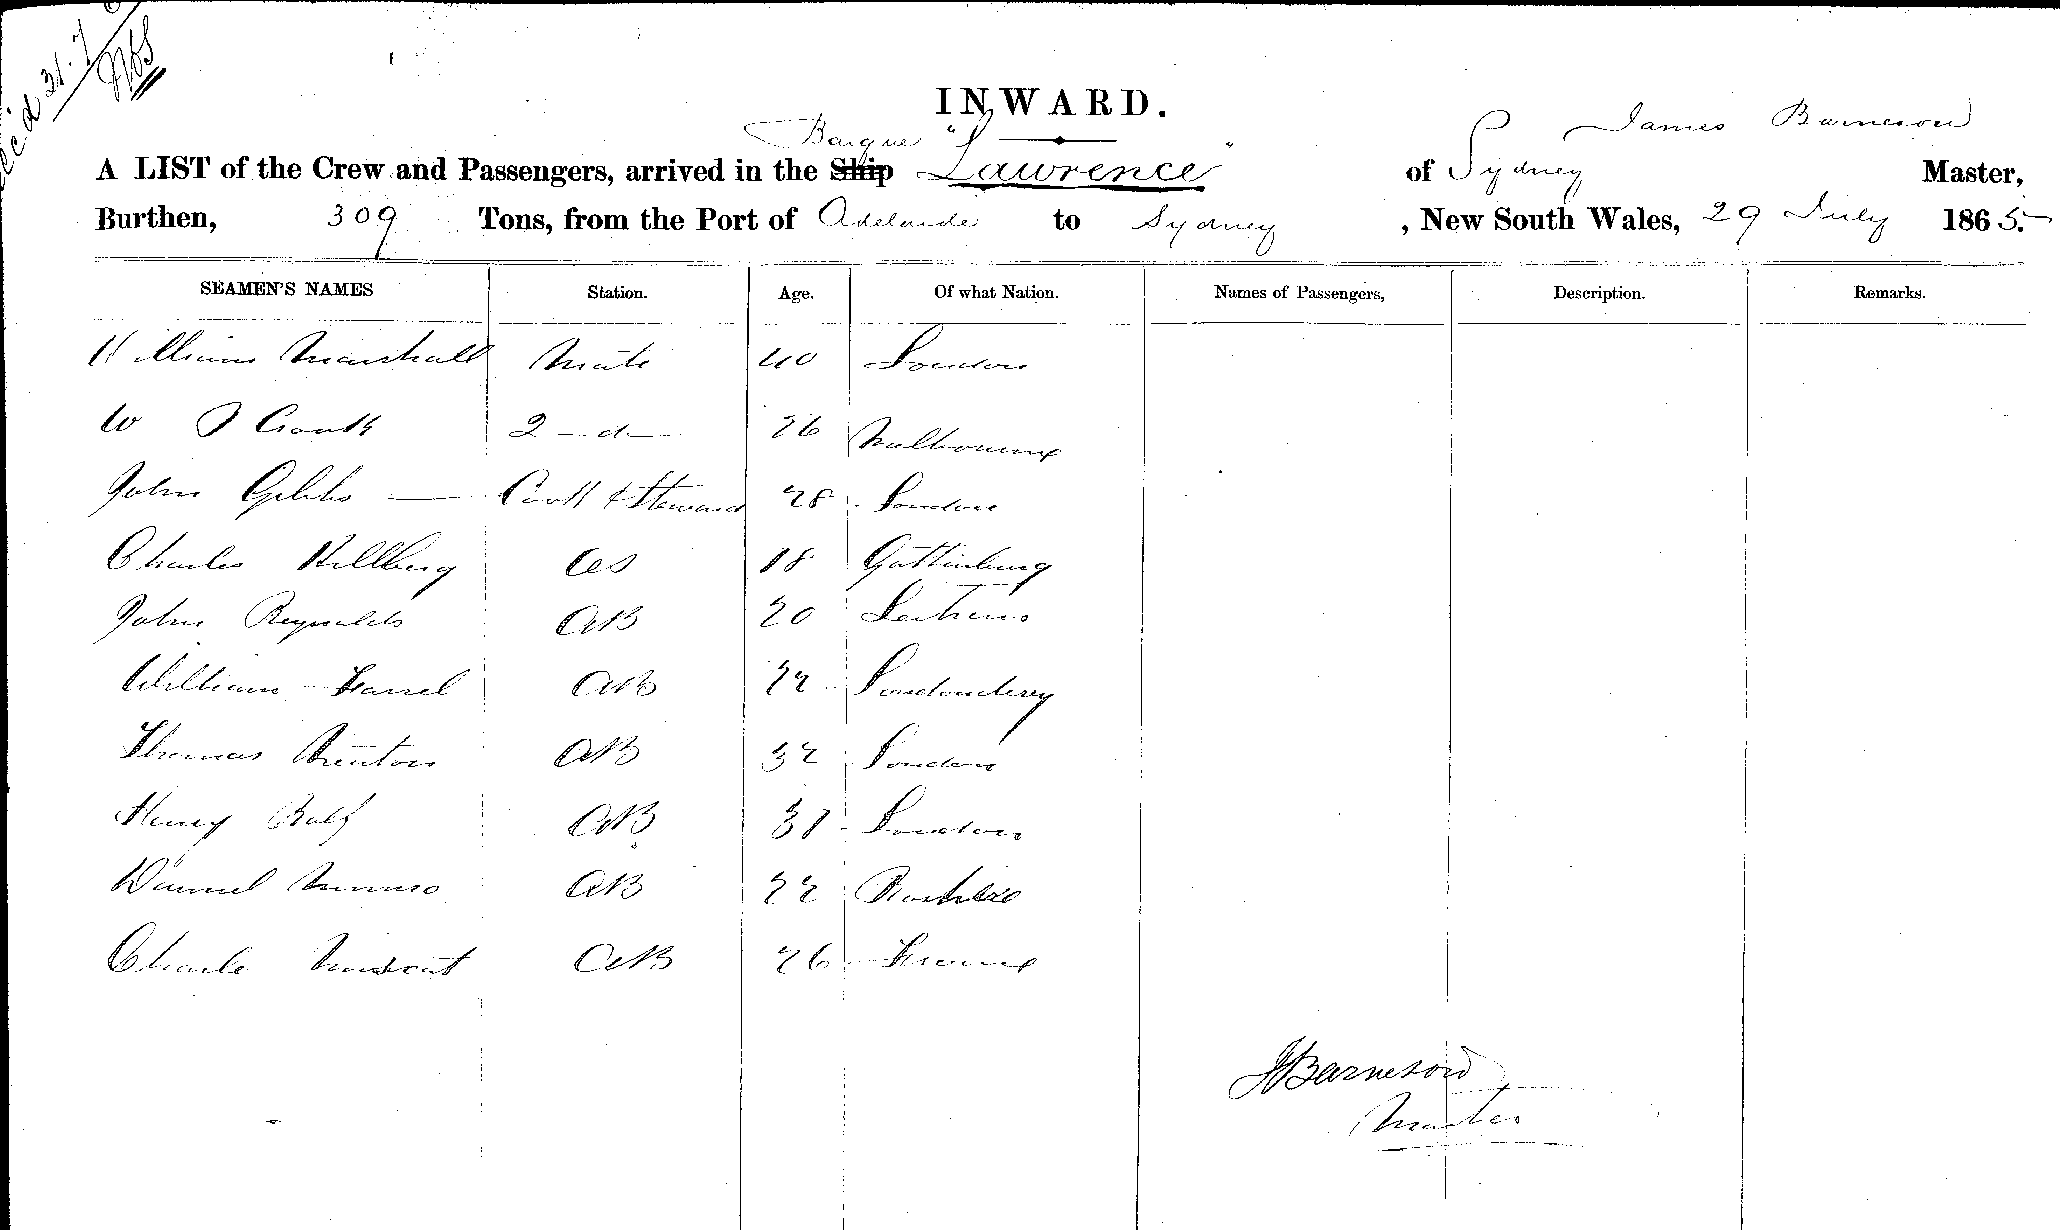 31.7
INWARD.
James Barneson
Barque "
A LIST of the Crew and Passengers, arrived in the Ship Lawrence" of Sydney Master,
Burthen, 309 Tons, from the Port of Adelaide to Sydney, New South Wales, 29 July 1865.
SEAMEN'S NAMES Station. Age. Of what Nation. Names of Passengers, Description. Remarks.
William Marshall Mate 40 London
W 2-d- 26 Melbourne
John Gibbs Cook & Steward 28 London
Charles Hillberg OS 18 Gottenburg
John Reynolds AB 20
William Farrel AB 22 Londonderry
Thomas AB 32 London
Henry AB 31 London
Daniel Munro AB 22
Charle Vincent AB 26 France
J Barneson
Master